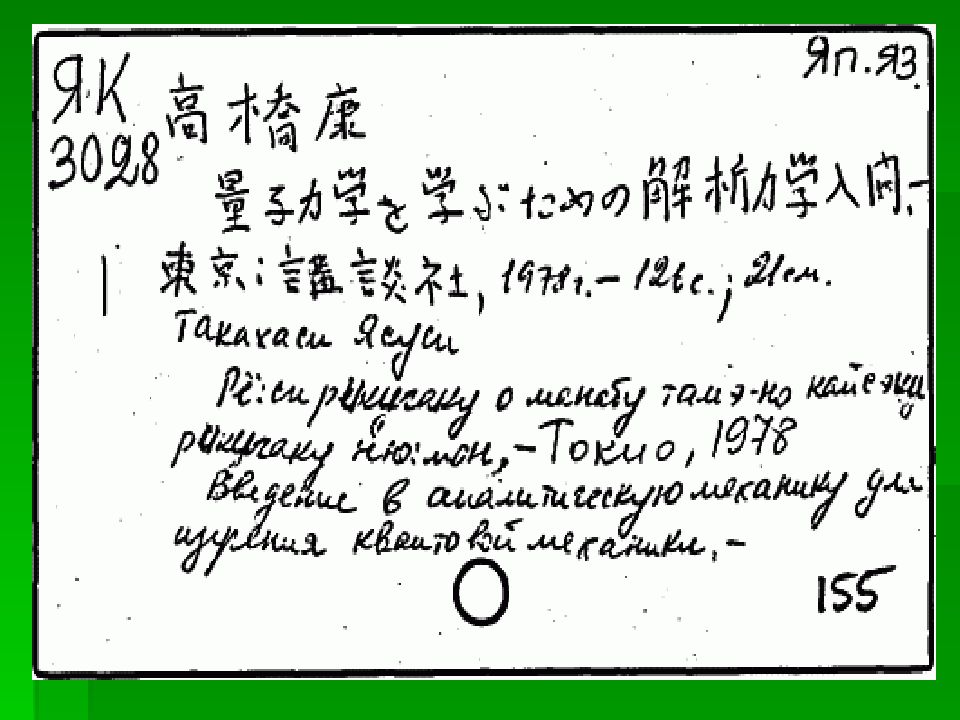 Яп.яз.
ЯК
3028
高橋康
量子力学を学ぶための解析力学入門.-
東京:講談社, 1978г.- 126с.; 21см.
Такахаси Ясуси
Рё:си рикигаку о манабу тамэ-но кайсэки
рикигаку ню:мон,-Токио, 1978
Введение в аналитическую механику для
изучения квантовой механики.-
155